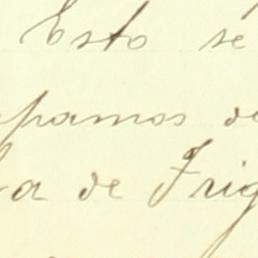 Esto sé
pamos de
a de Frig